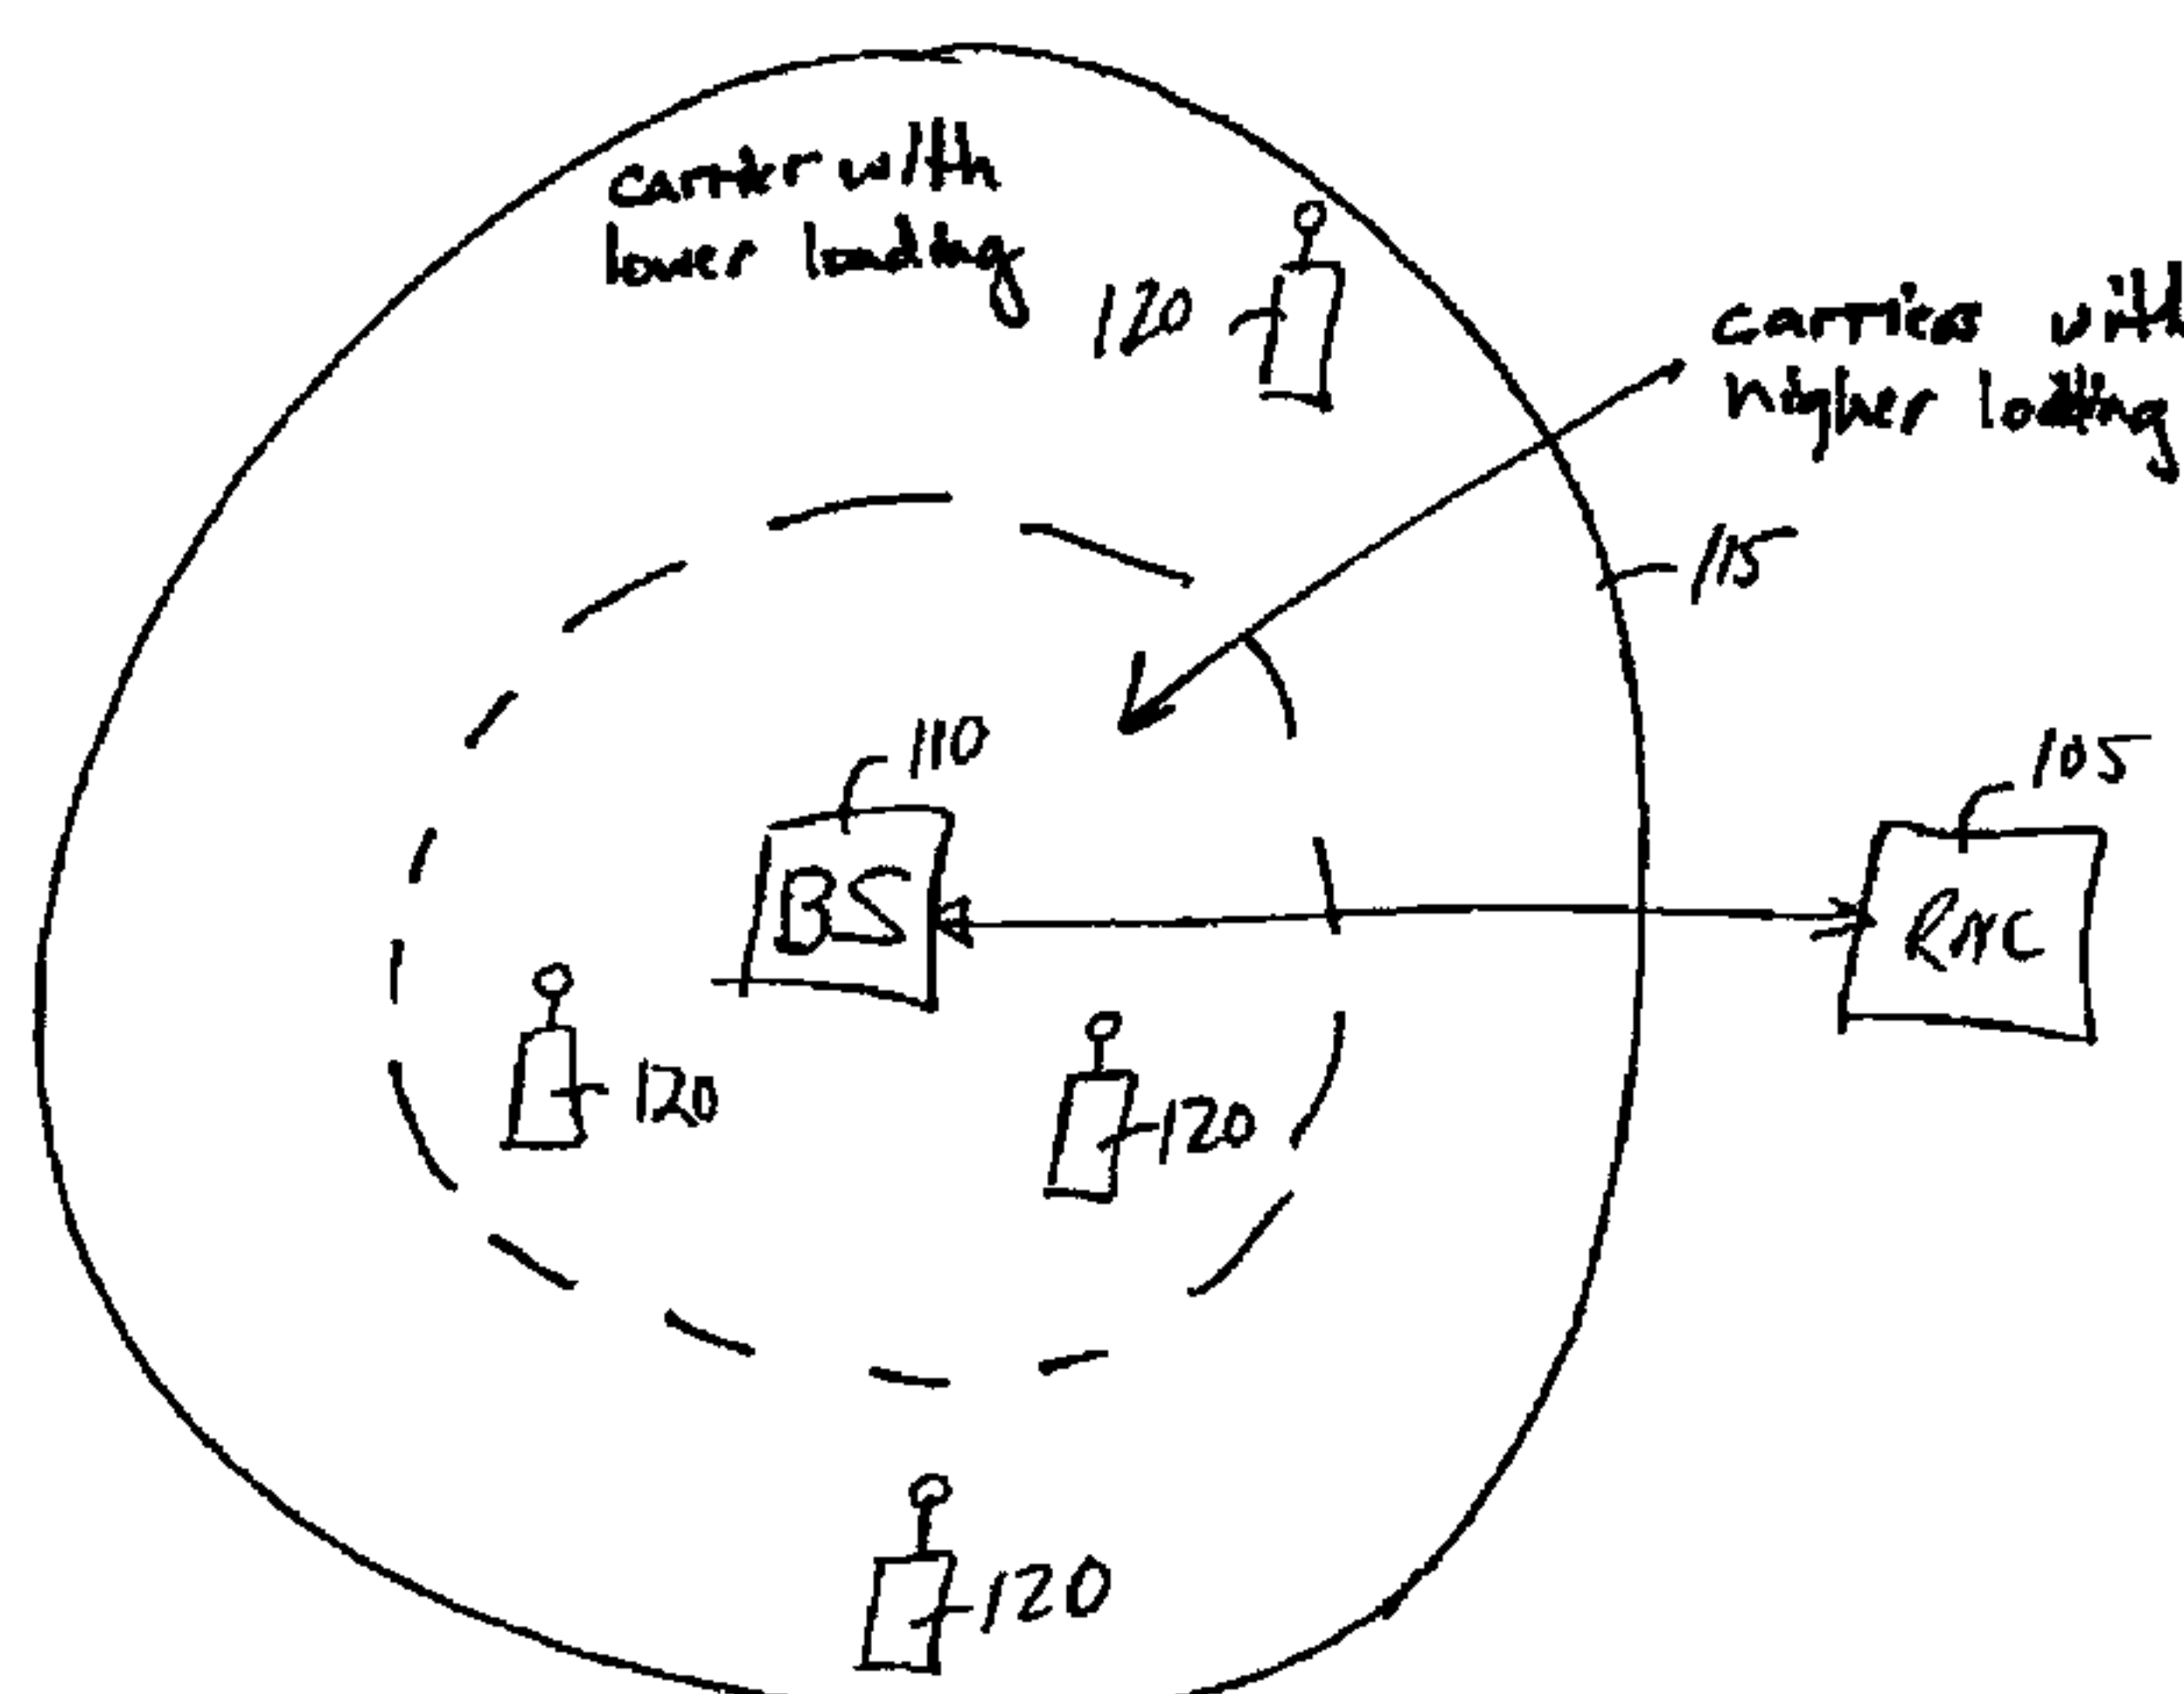 carrier with
lower loading
120
carrier with
higher loading
115
110
105
BS
RNC
120
120
120